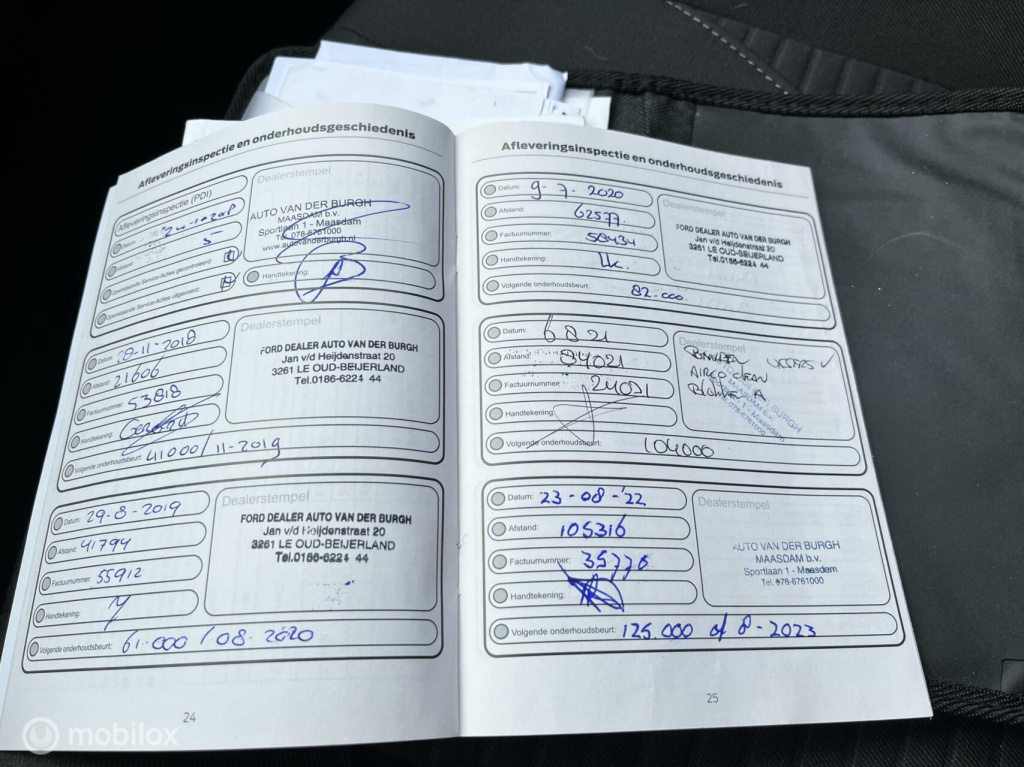 Afleveringsinspectie en onderhoudsgeschiedenis
Afleveringsinspectie (PDI)
Datum:
Afstand: 5
Openstaande Service-Acties gecontroleerd:
Openstaande Service-Acties uitgevoerd:
Dealerstempel
AUTO VAN DER BURGH
MAASDAM b.v.
Sportlaan 1 - Maasdam
Tel. 078-6761000
www.autovanderburgh.nl
Handtekening:
Datum: 28-11-2018
Afstand: 21606
Factuurnummer: 53818
Handtekening:
Volgende onderhoudsbeurt: 41000/11-2019
Dealerstempel
FORD DEALER AUTO VAN DER BURGH
Jan v/d Heijdenstraat 20
3261 LE OUD-BEIJERLAND
Tel.0186-6224 44
Datum: 29-8-2019
Afstand: 41794
Factuurnummer: 55912
Handtekening:
Volgende onderhoudsbeurt: 61.000 / 08-2020
Dealerstempel
FORD DEALER AUTO VAN DER BURGH
Jan v/d Heijdenstraat 20
3261 LE OUD-BEIJERLAND
Tel.0186-6224 44
24
Afleveringsinspectie en onderhoudsgeschiedenis
Datum: 9-7-2020
Afstand: 62577
Factuurnummer: 58434
Handtekening:
Volgende onderhoudsbeurt: 82.000
Dealerstempel
FORD DEALER AUTO VAN DER BURGH
Jan v/d Heijdenstraat 20
3261 LE OUD-BEIJERLAND
Tel.0186-6224 44
Datum: 6 8 21
Afstand: 84021
Factuurnummer: 24091
Handtekening:
Volgende onderhoudsbeurt: 104000
Dealerstempel
AIRCO CLEAN
MAASDAM b.v.
Datum: 23-08-'22
Afstand: 105316
Factuurnummer: 35776
Handtekening:
Volgende onderhoudsbeurt: 125.000 of 8-2023
Dealerstempel
AUTO VAN DER BURGH
MAASDAM b.v.
Sportlaan 1 - Maasdam
Tel. 078-6761000
25
mobilox